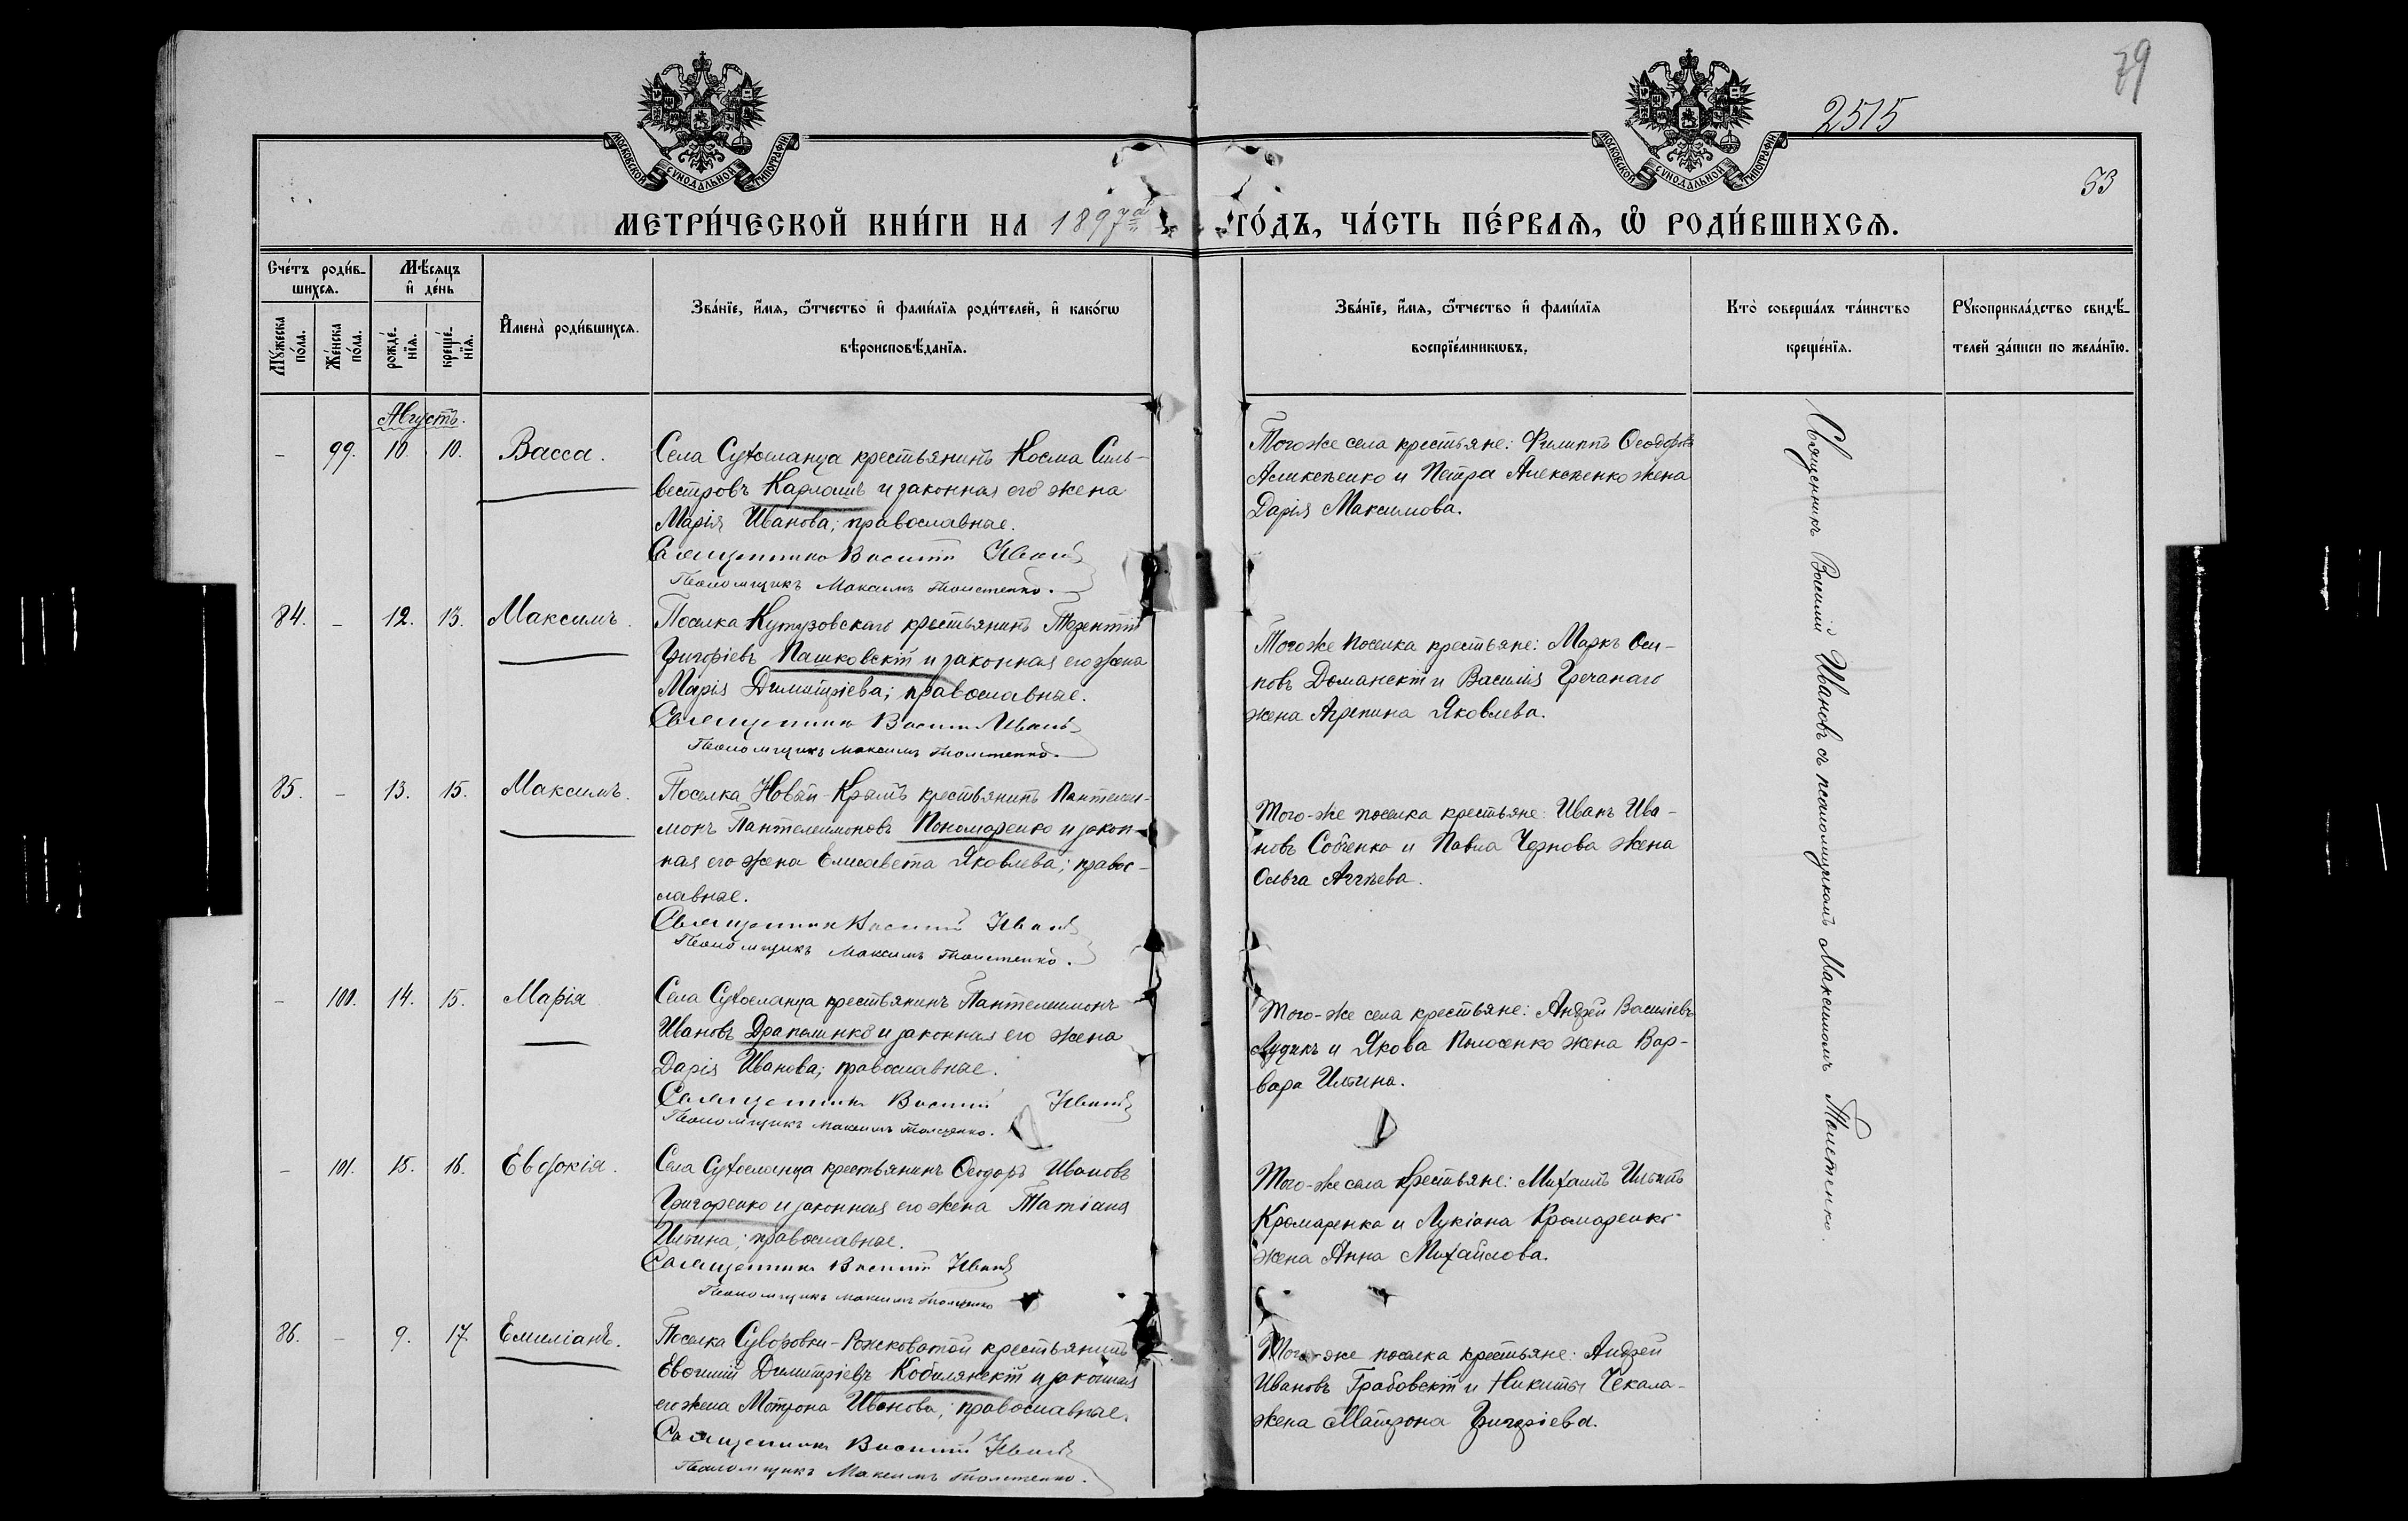 79
2515
53
МОСКОВСКОЙ СѴНОДАЛЬНОЙ ТИПОГРАФІИ
МОСКОВСКОЙ СѴНОДАЛЬНОЙ ТИПОГРАФІИ
МЕТРИ́ЧЕСКОЙ КНИ́ГИ НА 1897й ГО́ДЪ, ЧА́СТЬ ПЕ́РВАѦ, Ѡ҆ РОДИ́ВШИХСѦ.
Сче́тъ роди́в-
шихсѧ.
Мꙋ́жеска по́ла.
Же́нска по́ла.
Мѣ́сѧцъ
и҆ де́нь
рожде́-
нїѧ.
креще́-
нїѧ.
И҆мена̀ роди́вшихсѧ.
Зва́нїе, и҆́мѧ, ѻ҆́тчество и҆ фамі́лїѧ роди́телей, и҆ како́гѡ
вѣроисповѣ́данїѧ.
Зва́нїе, и҆́мѧ, ѻ҆́тчество и҆ фамі́лїѧ
воспрїе́мникѡвъ.
Кто̀ соверша́лъ та́инство
креще́нїѧ.
Рꙋкоприкла́дство свидѣ́-
телей за́писи по жела́нїю.
Августъ.
– 99. 10. 10. Васса.
Села Сухоеланца крестьянинъ Косма Силь-
вестровъ Карлашъ и законная его жена
Марія Иванова; православные.
Священникъ Василій Ивановъ
Псаломщикъ Максимъ Толстенко.
Того же села крестьяне: Филиппъ Ѳеодоровъ
Алексѣенко и Петра Алексѣенко жена
Дарія Максимова.
84. – 12. 13. Максимъ.
Поселка Кутузовскаго крестьянинъ Терентій
Григоріевъ Пашковскій и законная его жена
Марія Димитріева; православные.
Священникъ Василій Ивановъ
Псаломщикъ Максимъ Толстенко.
Того же поселка крестьяне: Маркъ Оси-
повъ Доманскій и Василія Гречанаго
жена Агрепина Яковлева.
85. – 13. 15. Максимъ.
Поселка Новый-Крымъ крестьянинъ Пантелеи-
монъ Пантелеимоновъ Пономаренко и закон-
ная его жена Елисавета Яковлева; правос-
лавные.
Священникъ Василій Ивановъ
Псаломщикъ Максимъ Толстенко.
Того-же поселка крестьяне: Иванъ Ива-
новъ Собченко и Павла Чернова жена
Ольга Аггѣева.
– 100. 14. 15. Марія
Села Сухоеланца крестьянинъ Пантелеимонъ
Ивановъ Драполенко и законная его жена
Дарія Иванова; православные.
Священникъ Василій Ивановъ
Псаломщикъ Максимъ Толстенко.
Того-же села крестьяне: Андрей Василіевъ
и Якова жена Вар-
вара Ильина.
– 101. 15. 16. Евдокія.
Села Сухоеланца крестьянинъ Ѳеодоръ Ивановъ
Григоренко и законная его жена Татіана
Ильина; православные.
Священникъ Василій Ивановъ
Псаломщикъ Максимъ Толстенко
Того-же села крестьяне: Михаилъ Ильинъ
Крамаренко и Лукіана Крамаренко
жена Анна Михайлова.
86. – 9. 17. Емиліанъ.
Поселка Суворовки-Рожковатой крестьянинъ
Евфимій Димитріевъ Кобилянскій и законная
его жена Мотрона Иванова; православные.
Священникъ Василій Ивановъ
Псаломщикъ Максимъ Толстенко.
Того-же поселка крестьяне: Андрей
Ивановъ Грабовскій и Никиты Чекала-
жена Матрона Григоріева.
Священникъ Василій Ивановъ съ псаломщикомъ Максимомъ Толстенко.